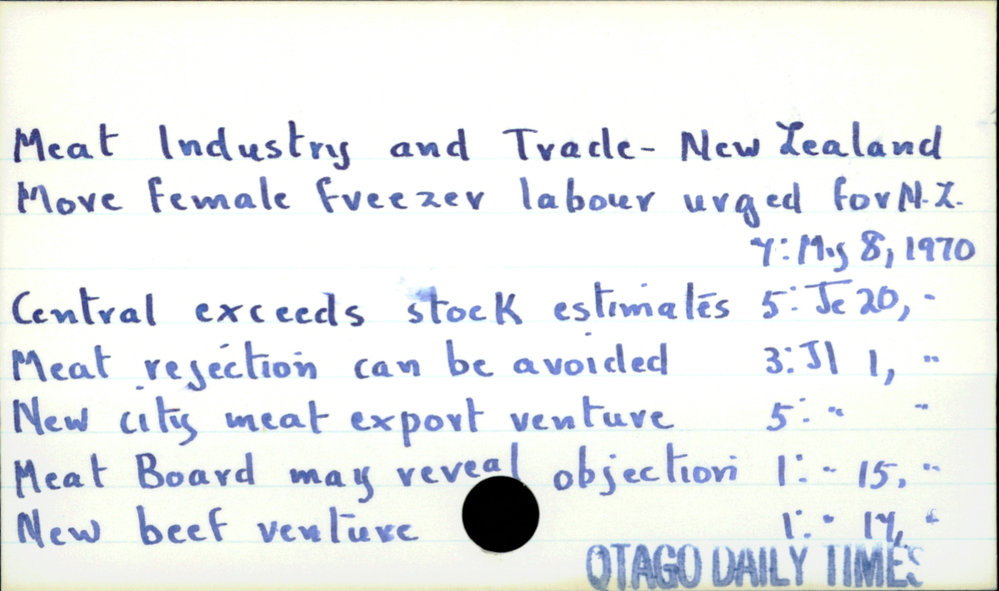 Meat Industry and Trade - New Zealand
More female freezer labour urged for N.Z.
7: My 8, 1970
Central exceeds stock estimates 5: Je 20, "
Meat rejection can be avoided 3: Jl 1, "
New city meat export venture 5: " "
Meat Board may reveal objection 1: " 15, "
New beef venture 1: " 17, "
OTAGO DAILY TIMES